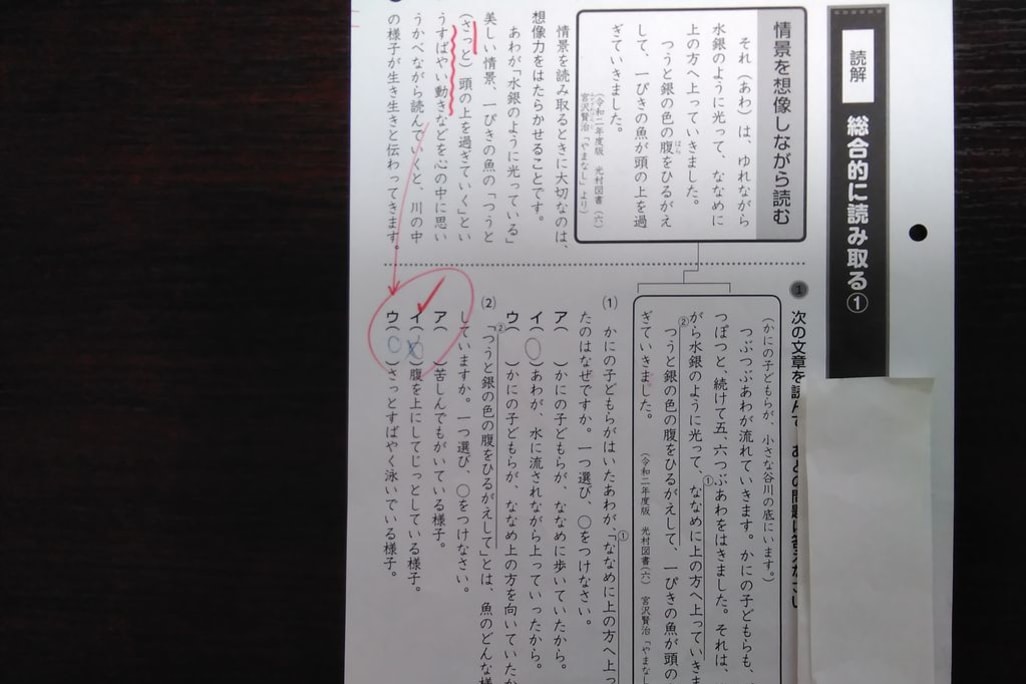 読解
総合的に読み取る①
情景を想像しながら読む
それ（あわ）は、ゆれながら
水銀のように光って、ななめに
上の方へ上っていきました。
つうと銀の色の腹をひるがえ
はら
して、一ぴきの魚が頭の上を過
ぎていきました。
（令和二年度版　光村図書（六）
宮沢賢治「やまなし」より）
情景を読み取るときに大切なのは、
想像力をはたらかせることです。
あわが「水銀のように光っている」
美しい情景、一ぴきの魚の「つうと
（さっと）頭の上を過ぎていく」とい
うすばやい動きなどを心の中に思い
うかべながら読んでいくと、川の中
の様子が生き生きと伝わってきます。
1
次の文章を読んで、あとの問題に答えなさい
（かにの子どもらが、小さな谷川の底にいます。）
つぶつぶあわが流れていきます。かにの子どもらも、
つぽつと、続けて五、六つぶあわをはきました。それは、
がら水銀のように光って、①ななめに上の方へ上っていきま
②つうと銀の色の腹をひるがえして、一ぴきの魚が頭の
ぎていきました。
（令和二年度版　光村図書（六）　宮沢賢治「やまな
(1)　かにの子どもらがはいたあわが、①「ななめに上の方へ上っ
たのはなぜですか。一つ選び、○をつけなさい。
ア（　）かにの子どもらが、ななめに歩いていたから。
イ（○）あわが、水に流されながら上っていったから。
ウ（　）かにの子どもらが、ななめ上の方を向いていたか
(2)　②「つうと銀の色の腹をひるがえして」とは、魚のどんな様
していますか。一つ選び、○をつけなさい。
ア（　）苦しんでもがいている様子。
イ（　）腹を上にしてじっとしている様子。
ウ（○）さっとすばやく泳いでいる様子。